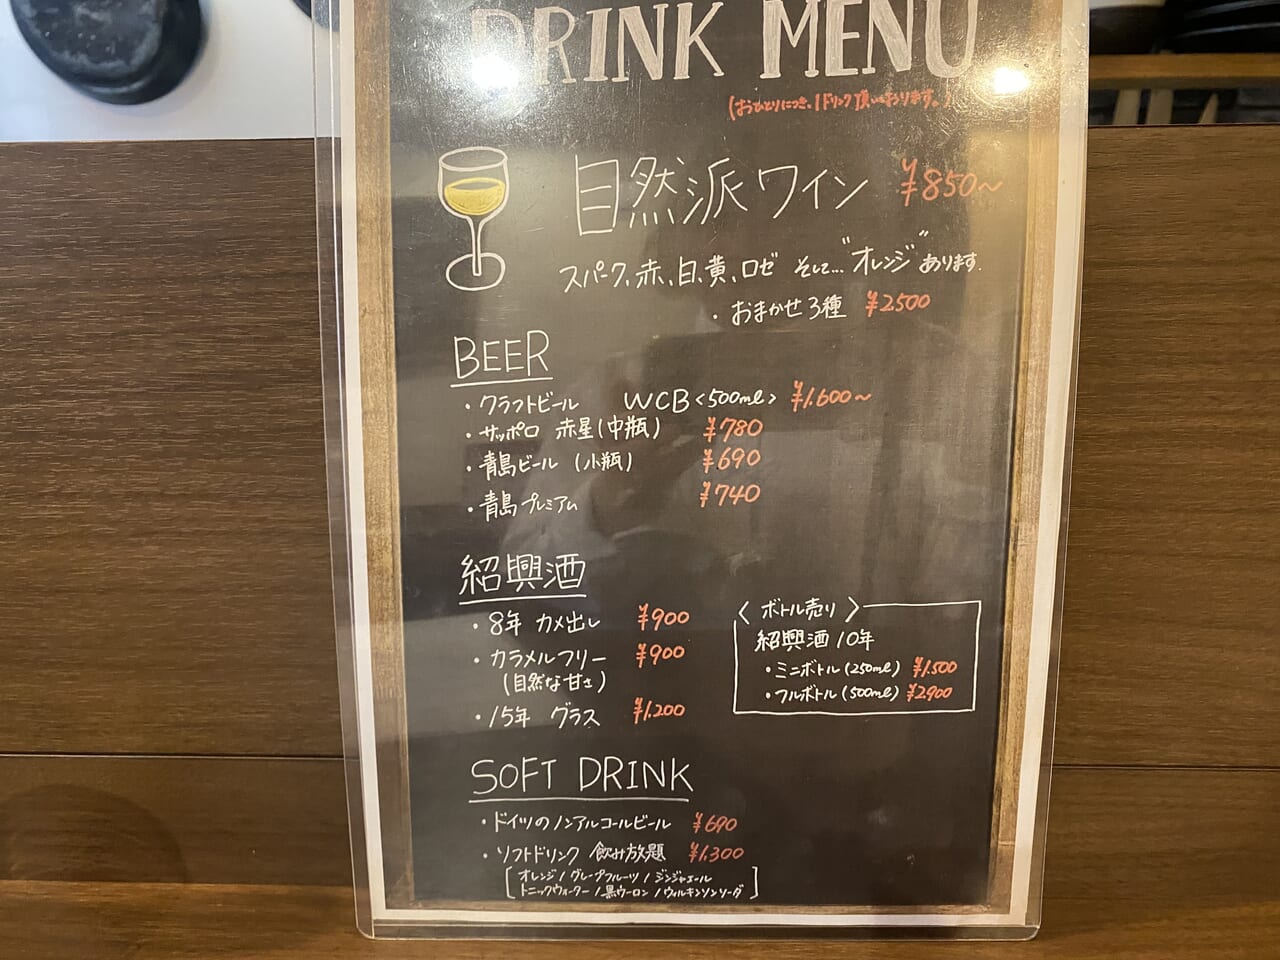 DRINK MENU
(おひとりにつき、1ドリンク頂いております。)
自然派ワイン ¥850~
スパーク、赤、白、黄、ロゼ そして…"オレンジ"あります.
・おまかせ3種 ¥2500
BEER
・クラフトビール WCB<500ml> ¥1.600~
・サッポロ 赤星(中瓶) ¥780
・青島ビール (小瓶) ¥690
・青島プレミアム ¥740
紹興酒
・8年 カメ出し ¥900
・カラメルフリー ¥900
(自然な甘さ)
・15年 グラス ¥1.200
〈ボトル売り〉
紹興酒10年
・ミニボトル(250ml) ¥1.500
・フルボトル(500ml) ¥2900
SOFT DRINK
・ドイツのノンアルコールビール ¥690
・ソフトドリンク 飲み放題 ¥1.300
[オレンジ/グレープフルーツ/ジンジャエール
トニックウォーター/黒ウーロン/ウィルキンソンソーダ]